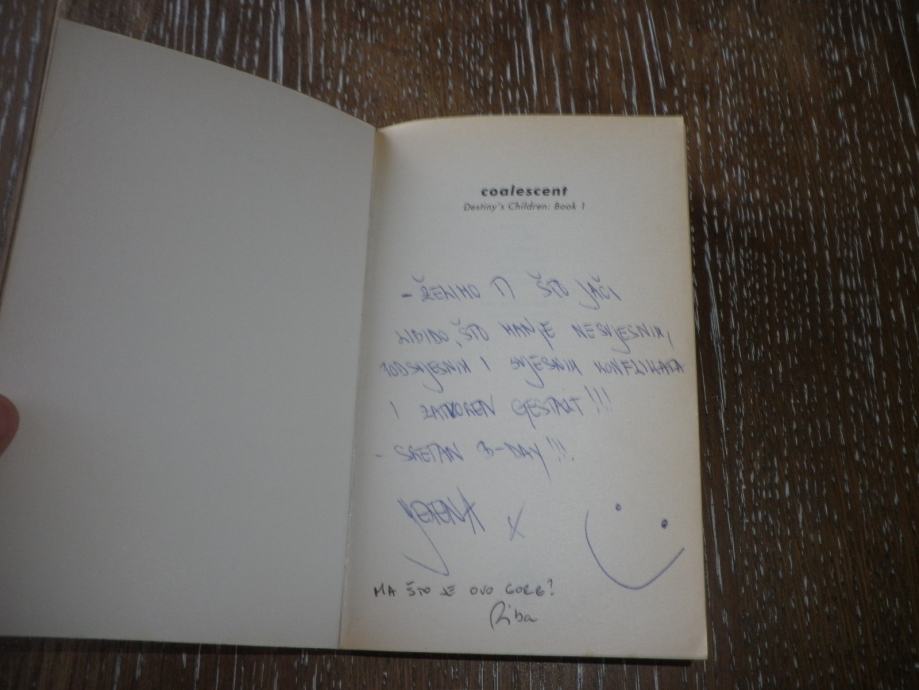 coalescent
Destiny's Children: Book 1
- ŽELIMO TI ŠTO JAČI
LIBIDO, ŠTO MANJE NESVJESNIH,
PODSVJESNIH I SVJESNIH KONFLIKATA
I ZATVOREN GESTALT!!!
- SRETAN B-DAY!!!
JELENA X
MA ŠTO JE OVO GORE?
Riba